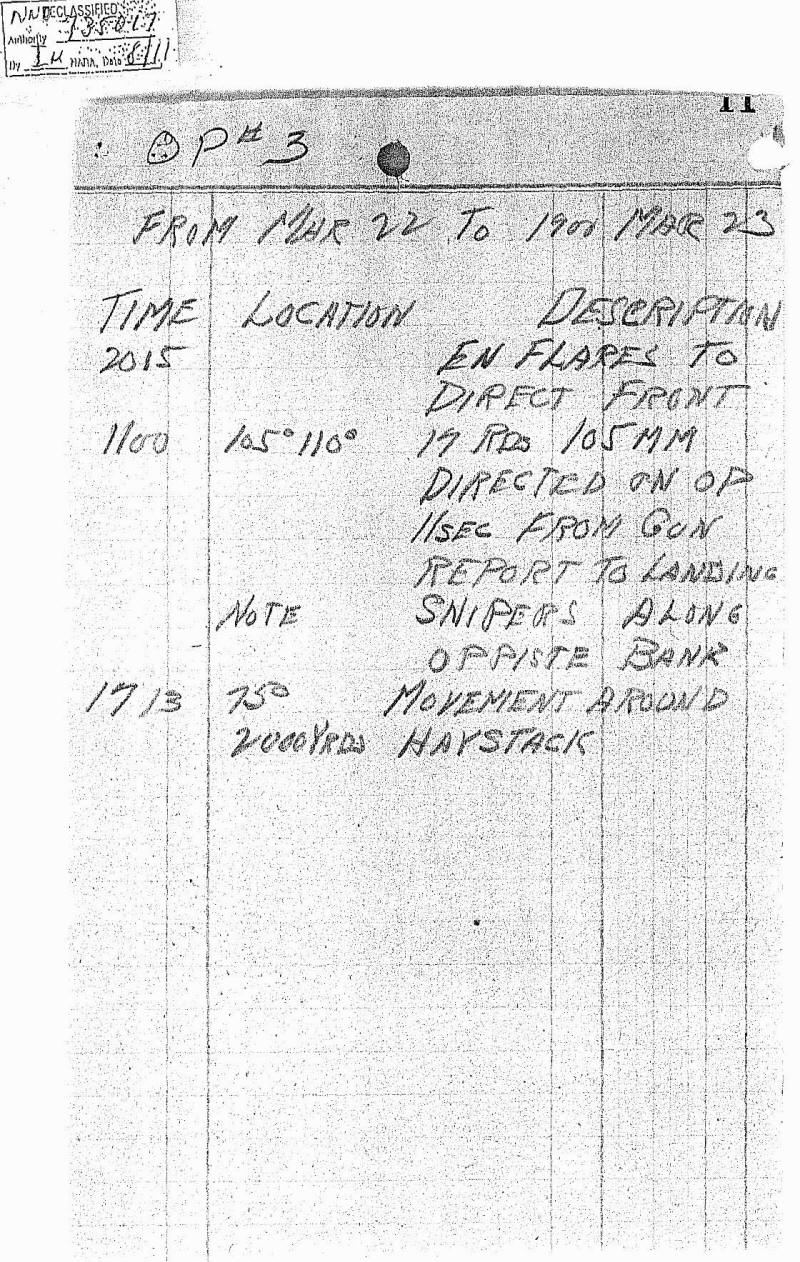 NND DECLASSIFIED
Authority 735017
By NARA, Date
11
OP# 3
FROM MAR 22 TO 1900 MAR 23
TIME LOCATION DESCRIPTION
2015 EN FLARES TO
DIRECT FRONT
1100 105° 110° 19 RDS 105MM
DIRECTED ON OP
11SEC FROM GUN
REPORT TO LANDING
NOTE SNIPERS ALONG
OPPISTE BANK
1713 75° MOVEMENT AROUND
2000YRDS HAYSTACK